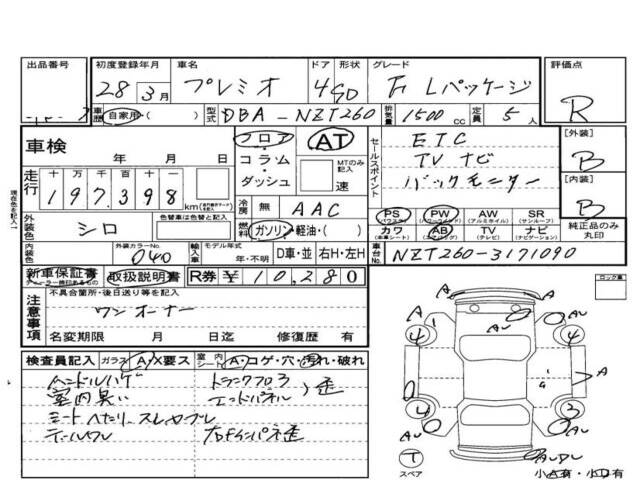 出品番号 初度登録年月 車名 ドア 形状 グレード 評価点
28年3月 プレミオ 4 SD F Lパッケージ R
車歴 自家用・( ) 型式 DBA-NZT260 排気量 1500cc 定員 5人
車検 年 月 日
フロア AT
コラム・ダッシュ MTのみ記入 速
セールスポイント
ETC
TV ナビ
バックモニター
[外装] B
[内装] B
走行 十 万 千 百 十 一
197,398 km
冷房 無 AAC
PS PW AW SR
(パワステ) (パワーウインド) (アルミホイル) (サンルーフ)
カワ AB TV ナビ
(本革シート) (エアバッグ) (テレビ) (ナビゲーション)
純正品のみ丸印
外装色 シロ 色替車は色替と記入
燃料 ガソリン・軽油・( )
内装色 外装カラーNo. 040 輸入車 モデル年式 年・不明 D車・並 右H・左H
車台No. NZT260-3171090
新車保証書 取扱説明書 R券 ¥10,280
ディーラー捺印あるもの
現在色を記入
注意事項 不具合箇所・後日送り等を記入
ワンオーナー
名変期限 月 日迄 修復歴 有
検査員記入 ガラス A・X要ス 室内シート A・コゲ・穴・汚れ・破れ
ハンドルハゲ トランクフロア
室内臭い エンドパネル 歪
シートヘタリ・スレ
右Fインパネ歪
ロック車
A
A A AU
4 4
A A
4 3
AU AU
T
スペア
小A有・小U有